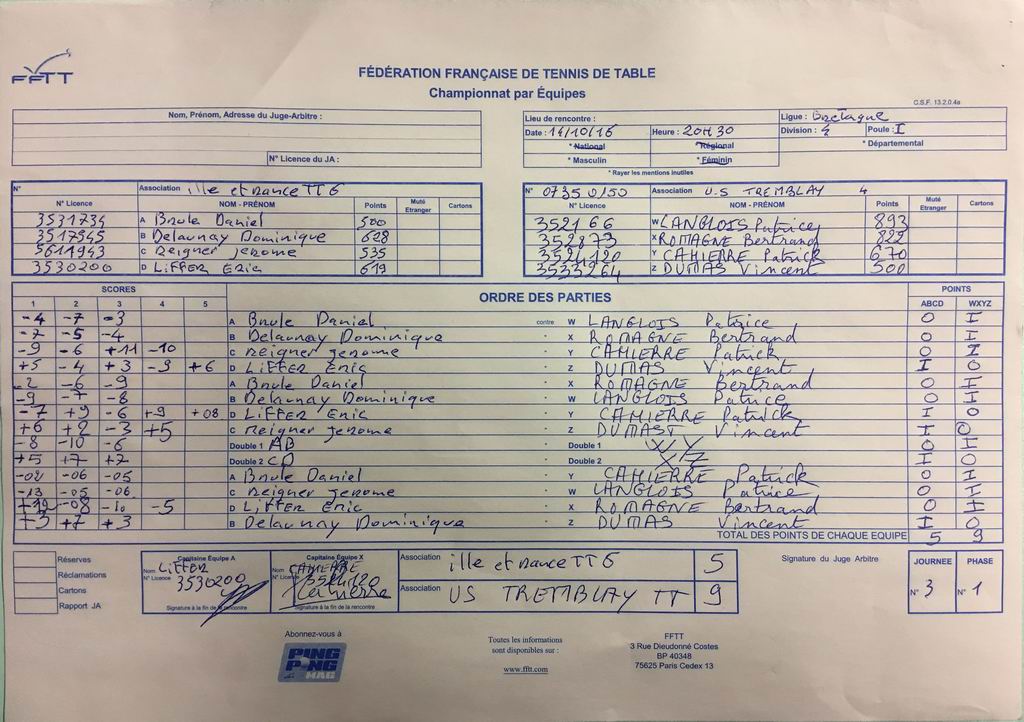 FFTT
FÉDÉRATION FRANÇAISE DE TENNIS DE TABLE
Championnat par Équipes
C.S.F. 13.2.0.4a
Nom, Prénom, Adresse du Juge-Arbitre :
N° Licence du JA :
Lieu de rencontre : Ligue : Bretagne
Date : 11/10/16 Heure : 20H30 Division : Poule : I
* National * Régional * Départemental
* Masculin * Féminin
* Rayer les mentions inutiles
N° Association ille et rance TT 6
N° Licence NOM - PRÉNOM Points Muté Etranger Cartons
3531735 A Brule Daniel 500
3517545 B Delaunay Dominique 628
5611943 C Reigner jerome 535
3530200 D LiFFER Eric 619
N° 07350150 Association U.S TREMBLAY 4
N° Licence NOM - PRÉNOM Points Muté Etranger Cartons
352166 W LANGLOIS Patrice 893
352873 X ROMAGNE Bertrand 822
3524120 Y CAHIERRE Patrick 670
3533264 Z DUMAS Vincent 500
SCORES ORDRE DES PARTIES POINTS
1 2 3 4 5 ABCD WXYZ
-4 -7 -3 A Brule Daniel contre W LANGLOIS Patrice O I
-7 -5 -4 B Delaunay Dominique - X ROMAGNE Bertrand O I
-9 -6 +11 -10 C Reigner jerome - Y CAHIERRE Patrick O I
+5 -4 +3 -9 +6 D LiFFER Eric - Z DUMAS Vincent I O
-2 -6 -9 A Brule Daniel - X ROMAGNE Bertrand O I
-9 -7 -8 B Delaunay Dominique - W LANGLOIS Patrice O I
-7 +9 -6 +9 +08 D LiFFER Eric - Y CAHIERRE Patrick I O
+6 +2 -3 +5 C Reigner jerome - Z DUMAST Vincent I O
-8 -10 -6 Double 1 AB - Double 1 WY O I
+5 +7 +7 Double 2 CD - Double 2 XZ I O
-02 -06 -05 A Brule Daniel - Y CAHIERRE Patrick O I
-13 -05 -06 C Reigner jerome - W LANGLOIS Patrice O I
-08 -10 -5 D LiFFER Eric - X ROMAGNE Bertrand O I
+3 +7 +3 B Delaunay Dominique - Z DUMAS Vincent I O
TOTAL DES POINTS DE CHAQUE EQUIPE 5 9
Réserves
Réclamations
Cartons
Rapport JA
Capitaine Équipe A
Nom LiFFER
N° Licence 3530200
Signature à la fin de la rencontre
Capitaine Équipe X
Nom CAHIERRE
N° Licence 3524120
Cahierre
Signature à la fin de la rencontre
Association ille et rance TT 6 5
Association US TREMBLAY TT 9
Signature du Juge Arbitre
JOURNEE PHASE
N° 3 N° 1
Abonnez-vous à
PING PONG MAG
Toutes les informations
sont disponibles sur :
www.fftt.com
FFTT
3 Rue Dieudonné Costes
BP 40348
75625 Paris Cedex 13